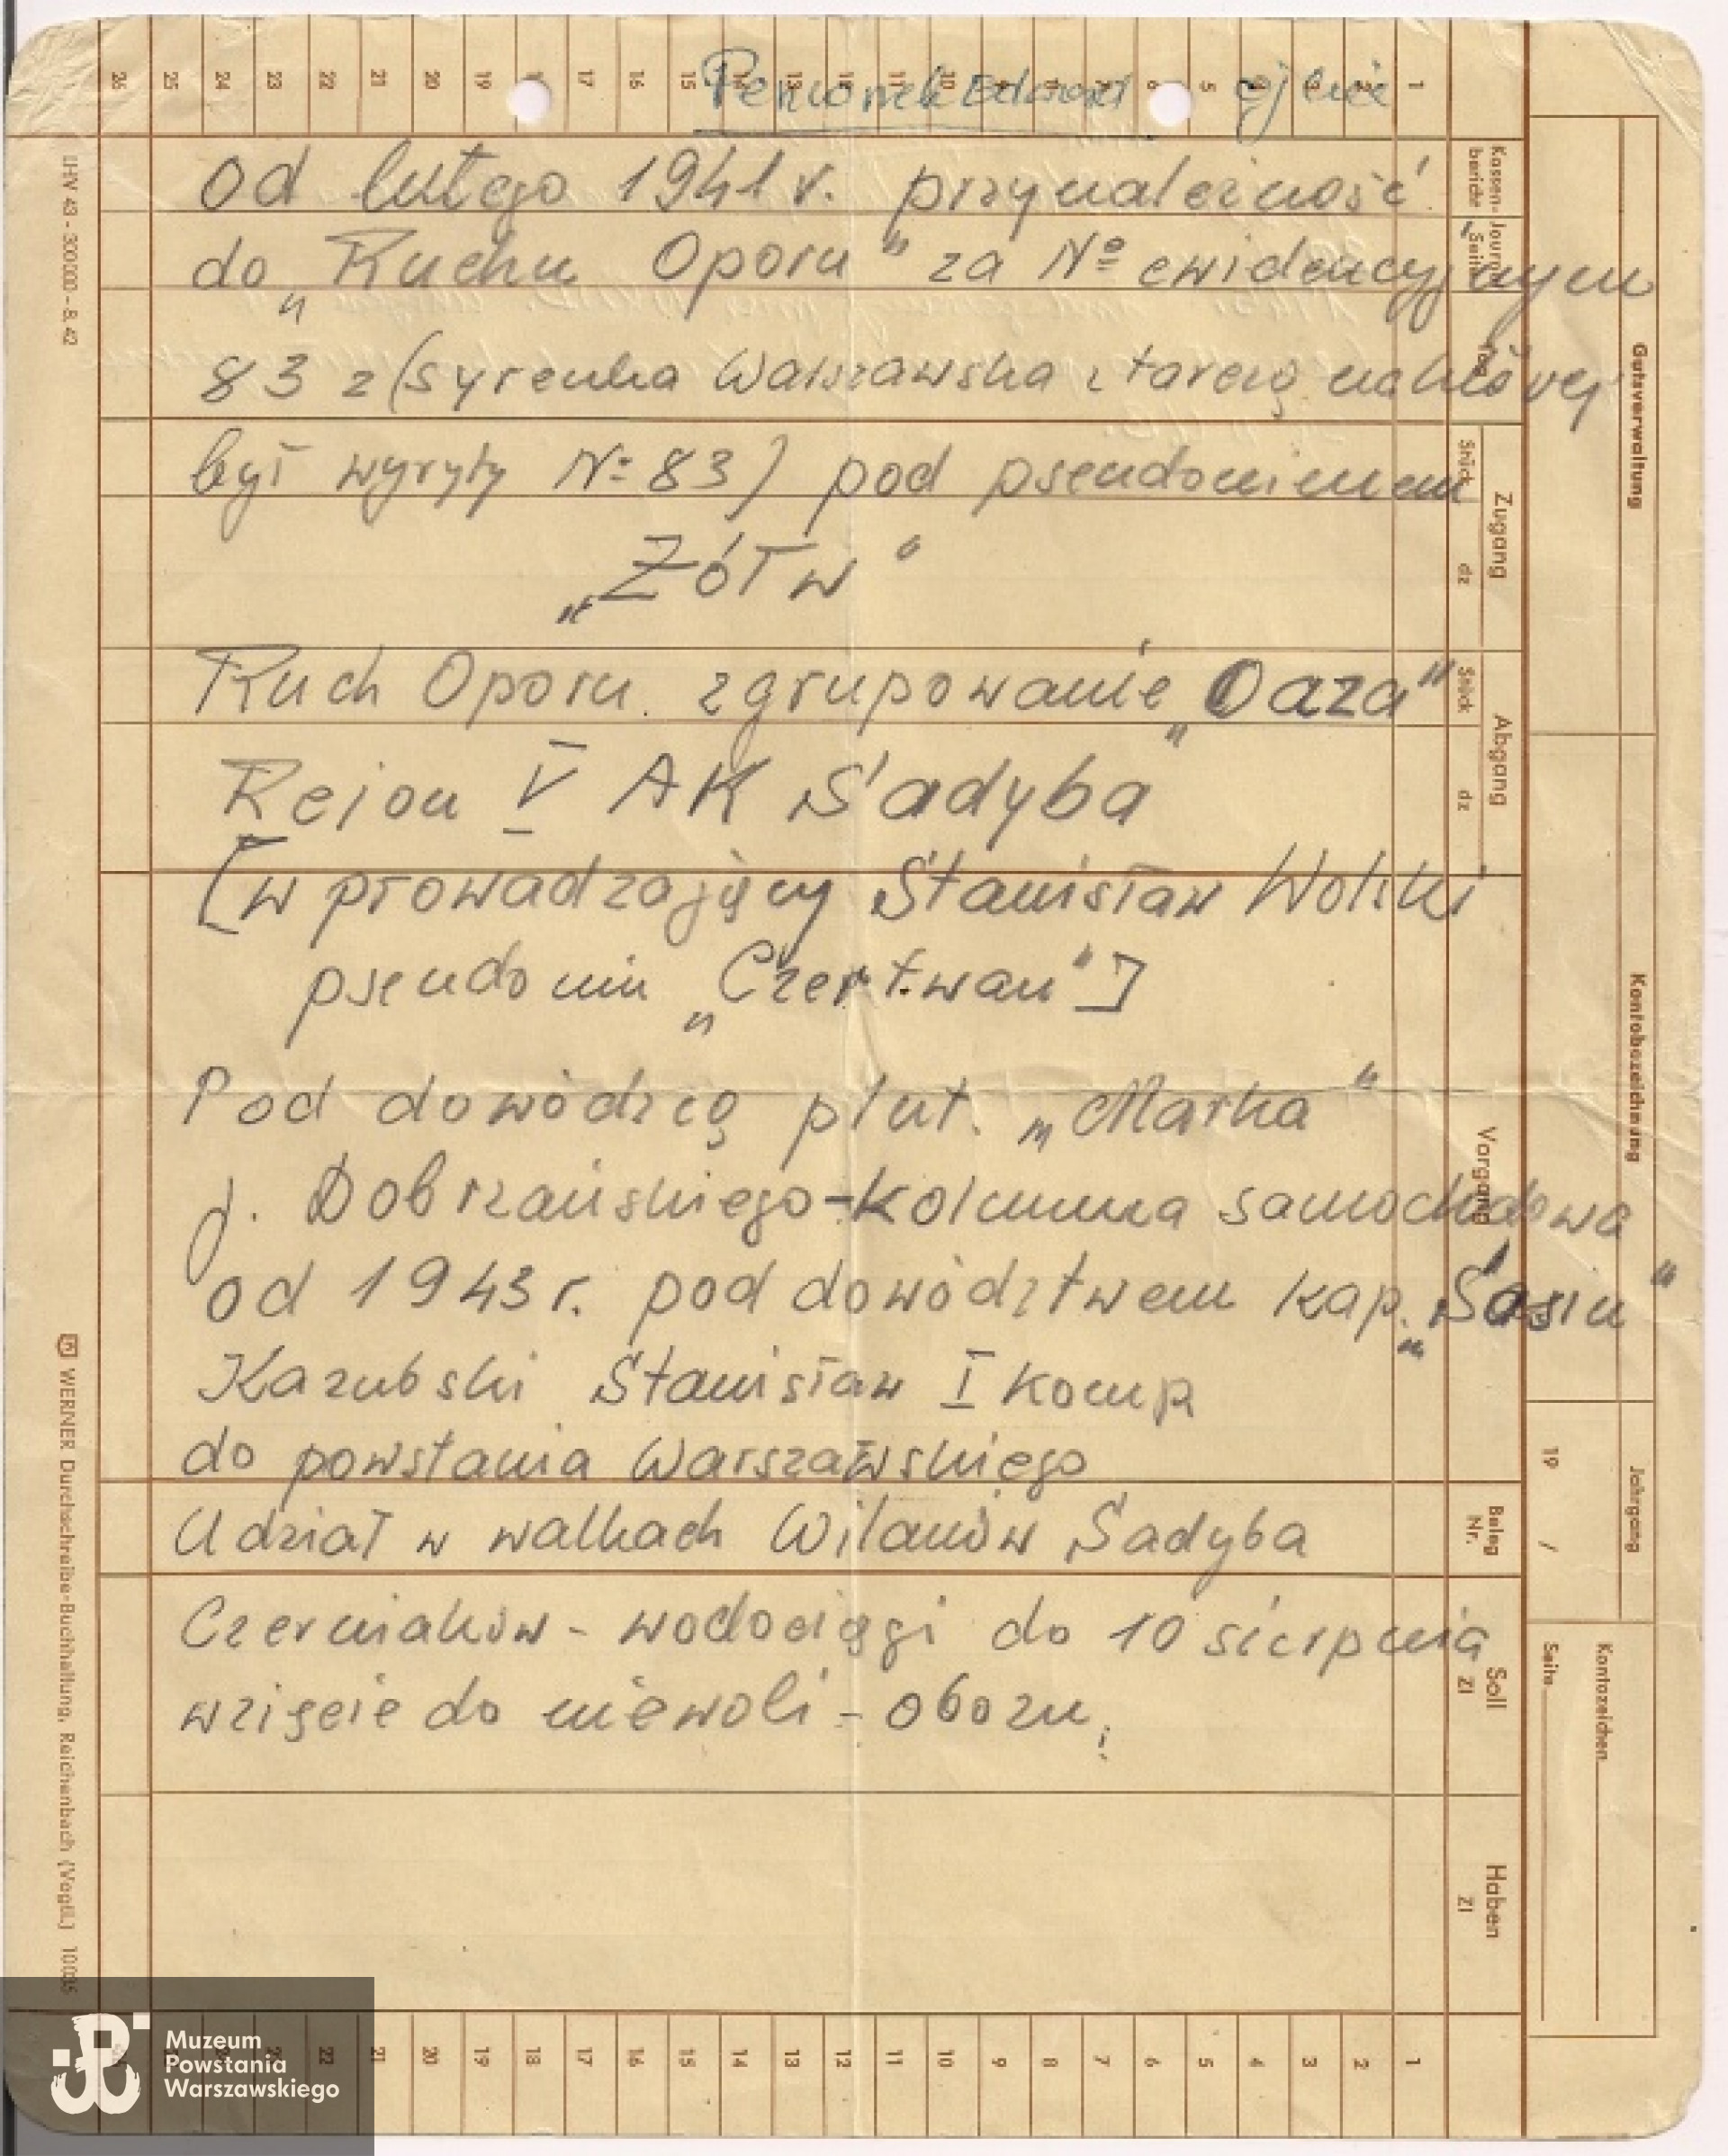 Edward ojciec
od lutego 1941 r. przynależność
do „Ruchu Oporu" za Nº ewidencyjnym
83 z (syrenka Warszawska z tarczą na której
był wyryty Nº 83) pod pseudonimem
„Żółw"
Ruch Oporu. zgrupowanie „Oaza"
Rejon V AK Sadyba
[wprowadzający Stanisław Wolski
pseudonim „Czertwan"]
Pod dowódzcą plut. „Marka"
J. Dobrzańskiego - Kolumna samochodowa
od 1943 r. pod dowództwem kap. „Sasiu"
Kazubski Stanisław I komp
do powstania Warszawskiego
Udział w walkach Wilanów Sadyba
Czerniaków - wodociągi do 10 sierpnia
wzięcie do niewoli - obozu.
26 25 24 23 22 21 20 19 17 16 15 14 13 12 11 10 9 8 7 6 5 4 3 2 1
Kassen-bericht
Journ. Seite
Tag
Zugang
Stück dz
Abgang
Stück dz
Vorgang
Beleg Nr.
Soll Zl
Haben Zl
Gutsverwaltung
Kontobezeichnung
Jahrgang
19 /
Kontozeichen
Seite
LHV 43 - 300000 - 8. 42
WERNER Durchschreibe-Buchhaltung, Reichenbach (Vogtl.)
22 21 20 19 18 17 16 15 14 13 12 11 10 9 8 7 6 5 4 3 2 1
Muzeum
Powstania
Warszawskiego